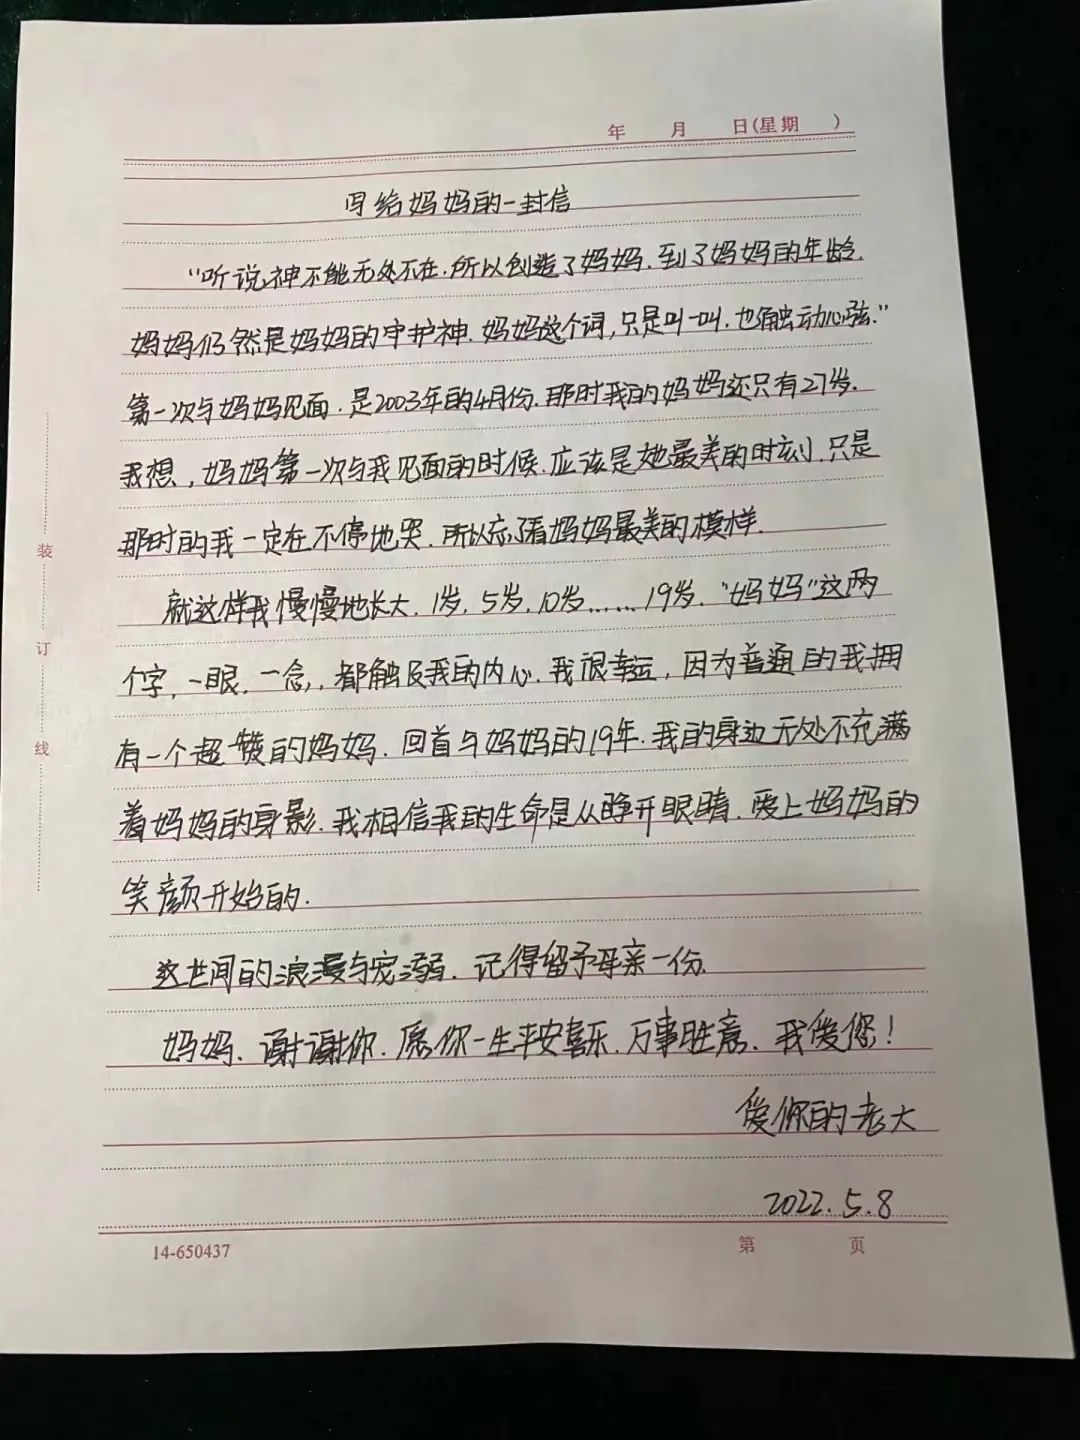 年 月 日(星期 )
写给妈妈的一封信
"听说神不能无处不在.所以创造了妈妈.到了妈妈的年龄.
妈妈仍然是妈妈的守护神.妈妈这个词,只是叫一叫.也触动心弦."
第一次与妈妈见面.是2003年的4月份.那时我的妈妈还只有27岁.
我想,妈妈第一次与我见面的时候.应该是她最美的时刻.只是
那时的我一定在不停地哭.所以忘了看妈妈最美的模样.
就这样我慢慢地长大.1岁.5岁.10岁......19岁."妈妈"这两
个字,一眼,一念,都触及我的内心.我很幸运,因为普通的我拥
有一个超赞的妈妈.回首与妈妈的19年.我的身边无处不充满
着妈妈的身影.我相信我的生命是从睁开眼睛.爱上妈妈的
笑颜开始的.
这世间的浪漫与宠溺.记得留予母亲一份.
妈妈.谢谢你.愿你一生平安喜乐.万事胜意.我爱您!
爱你的老大
2022.5.8
14-650437 第 页
装
订
线